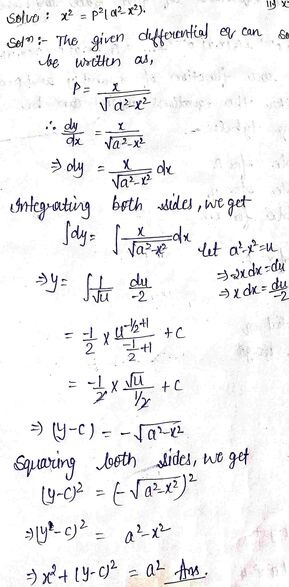 Solve : x² = P²(a²-x²).
Solⁿ:- The given differential eq can
be written as,
P = x/√(a²-x²)
∴ dy/dx = x/√(a²-x²)
⇒ dy = x/√(a²-x²) dx
Integrating both sides, we get
∫dy = ∫ x/√(a²-x²) dx
let a²-x²=u
⇒-2x dx = du
⇒ x dx = du/-2
⇒ y = ∫ 1/√u du/-2
= -1/2 × u^(-1/2+1)/(-1/2+1) + c
= -1/2 × √u/(1/2) + c
⇒ (y-c) = -√(a²-x²)
Squaring both sides, we get
(y-c)² = (-√(a²-x²))²
⇒(y-c)² = a²-x²
⇒ x²+(y-c)² = a² Ans.